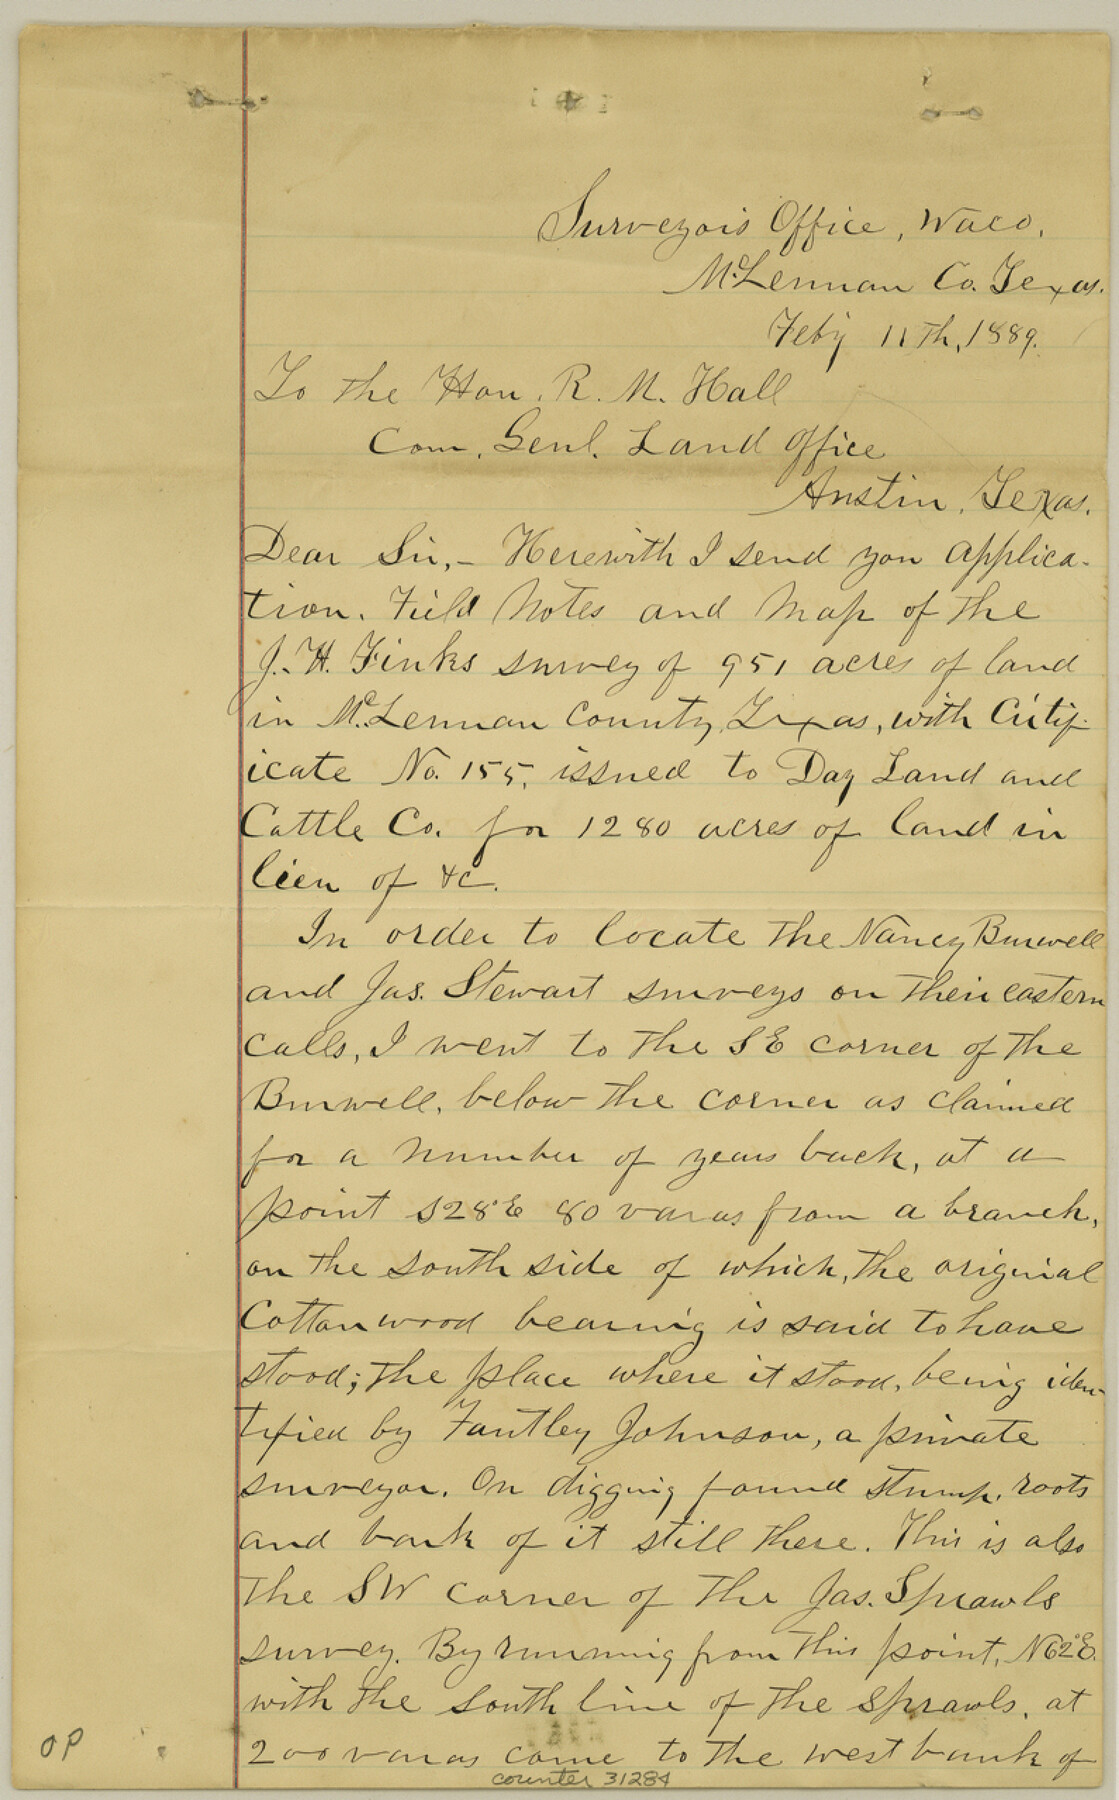 Surveyor's Office, Waco,
McLennan Co. Texas.
Feb'y 11th, 1889.
To the Hon. R. M. Hall
Com. Genl. Land Office
Austin, Texas.
Dear Sir,- Herewith I send you applica-
tion, Field Notes and Map of the
J. H. Finks survey of 951 acres of land
in McLennan County, Texas, with Certif-
icate No. 155, issued to Day Land and
Cattle Co. for 1280 acres of land in
lieu of &c.
In order to locate the Nancy Burwell
and Jas. Stewart surveys on their eastern
calls, I went to the S E corner of the
Burwell, below the corner as claimed
for a number of years back, at a
point S28°E 80 varas from a branch,
on the south side of which, the original
Cottonwood bearing is said to have
stood; the place where it stood, being iden-
tified by Fantley Johnson, a private
surveyor. On digging found stump, roots
and bark of it still there. This is also
the SW corner of the Jas. Sprawls
survey. By running from this point, N62°E.
with the south line of the Sprawls, at
200 varas came to the west bank of
OP
counter 31284